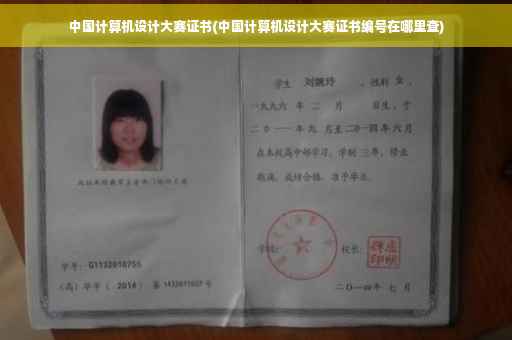 中国计算机设计大赛证书(中国计算机设计大赛证书编号在哪里查)
学生 刘婉玲 ，性别 女 ，
一九九六 年 二 月 日生，于
二〇一一年九 月至二〇一四年六月
在本校高中部学习，学制 三年，修业
期满，成绩合格，准予毕业。
学校： 校长：
二〇一四年 七 月
学号： G1132010755
(高) 毕字 ( 2014 ) 第 1432011027 号